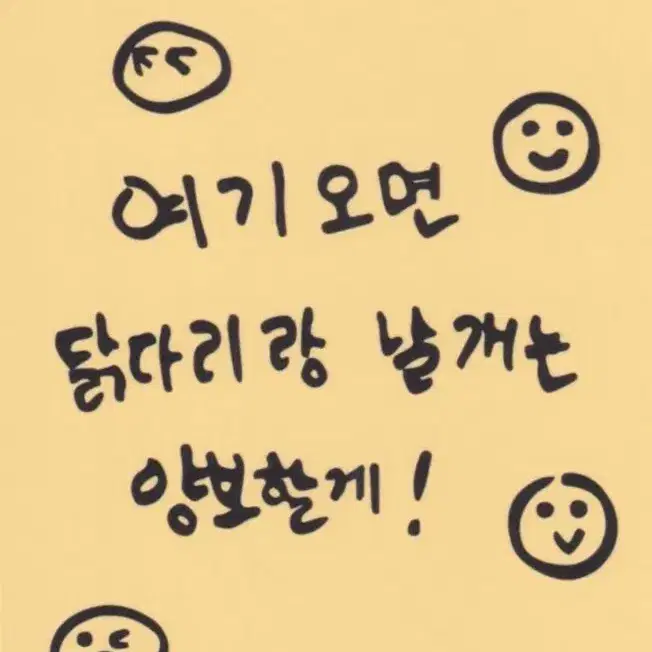 여기오면
닭다리랑 날개는
양보할게!